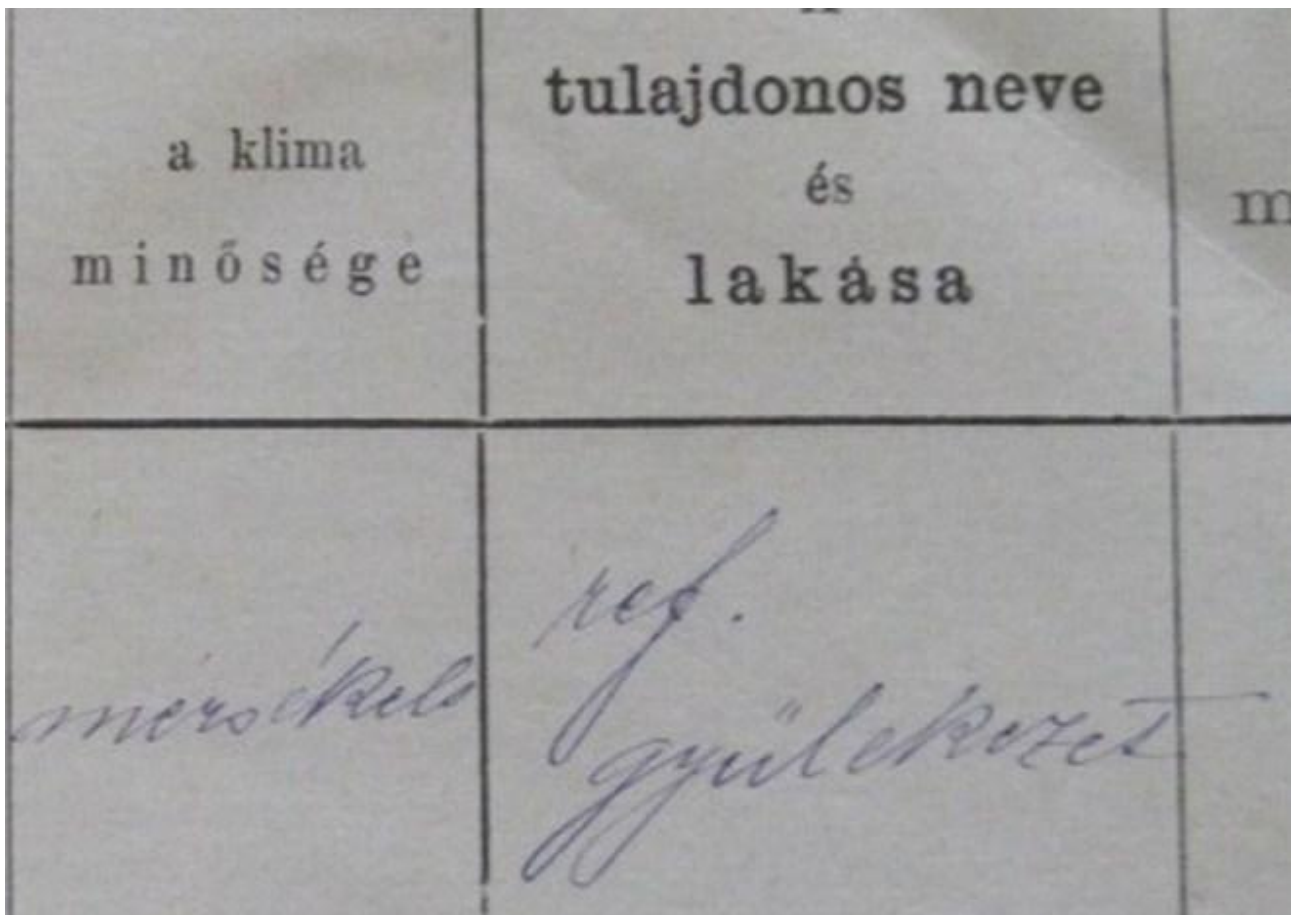 a klima
minősége
tulajdonos neve
és
lakása
m
mérsékelt
ref.
gyülekezet